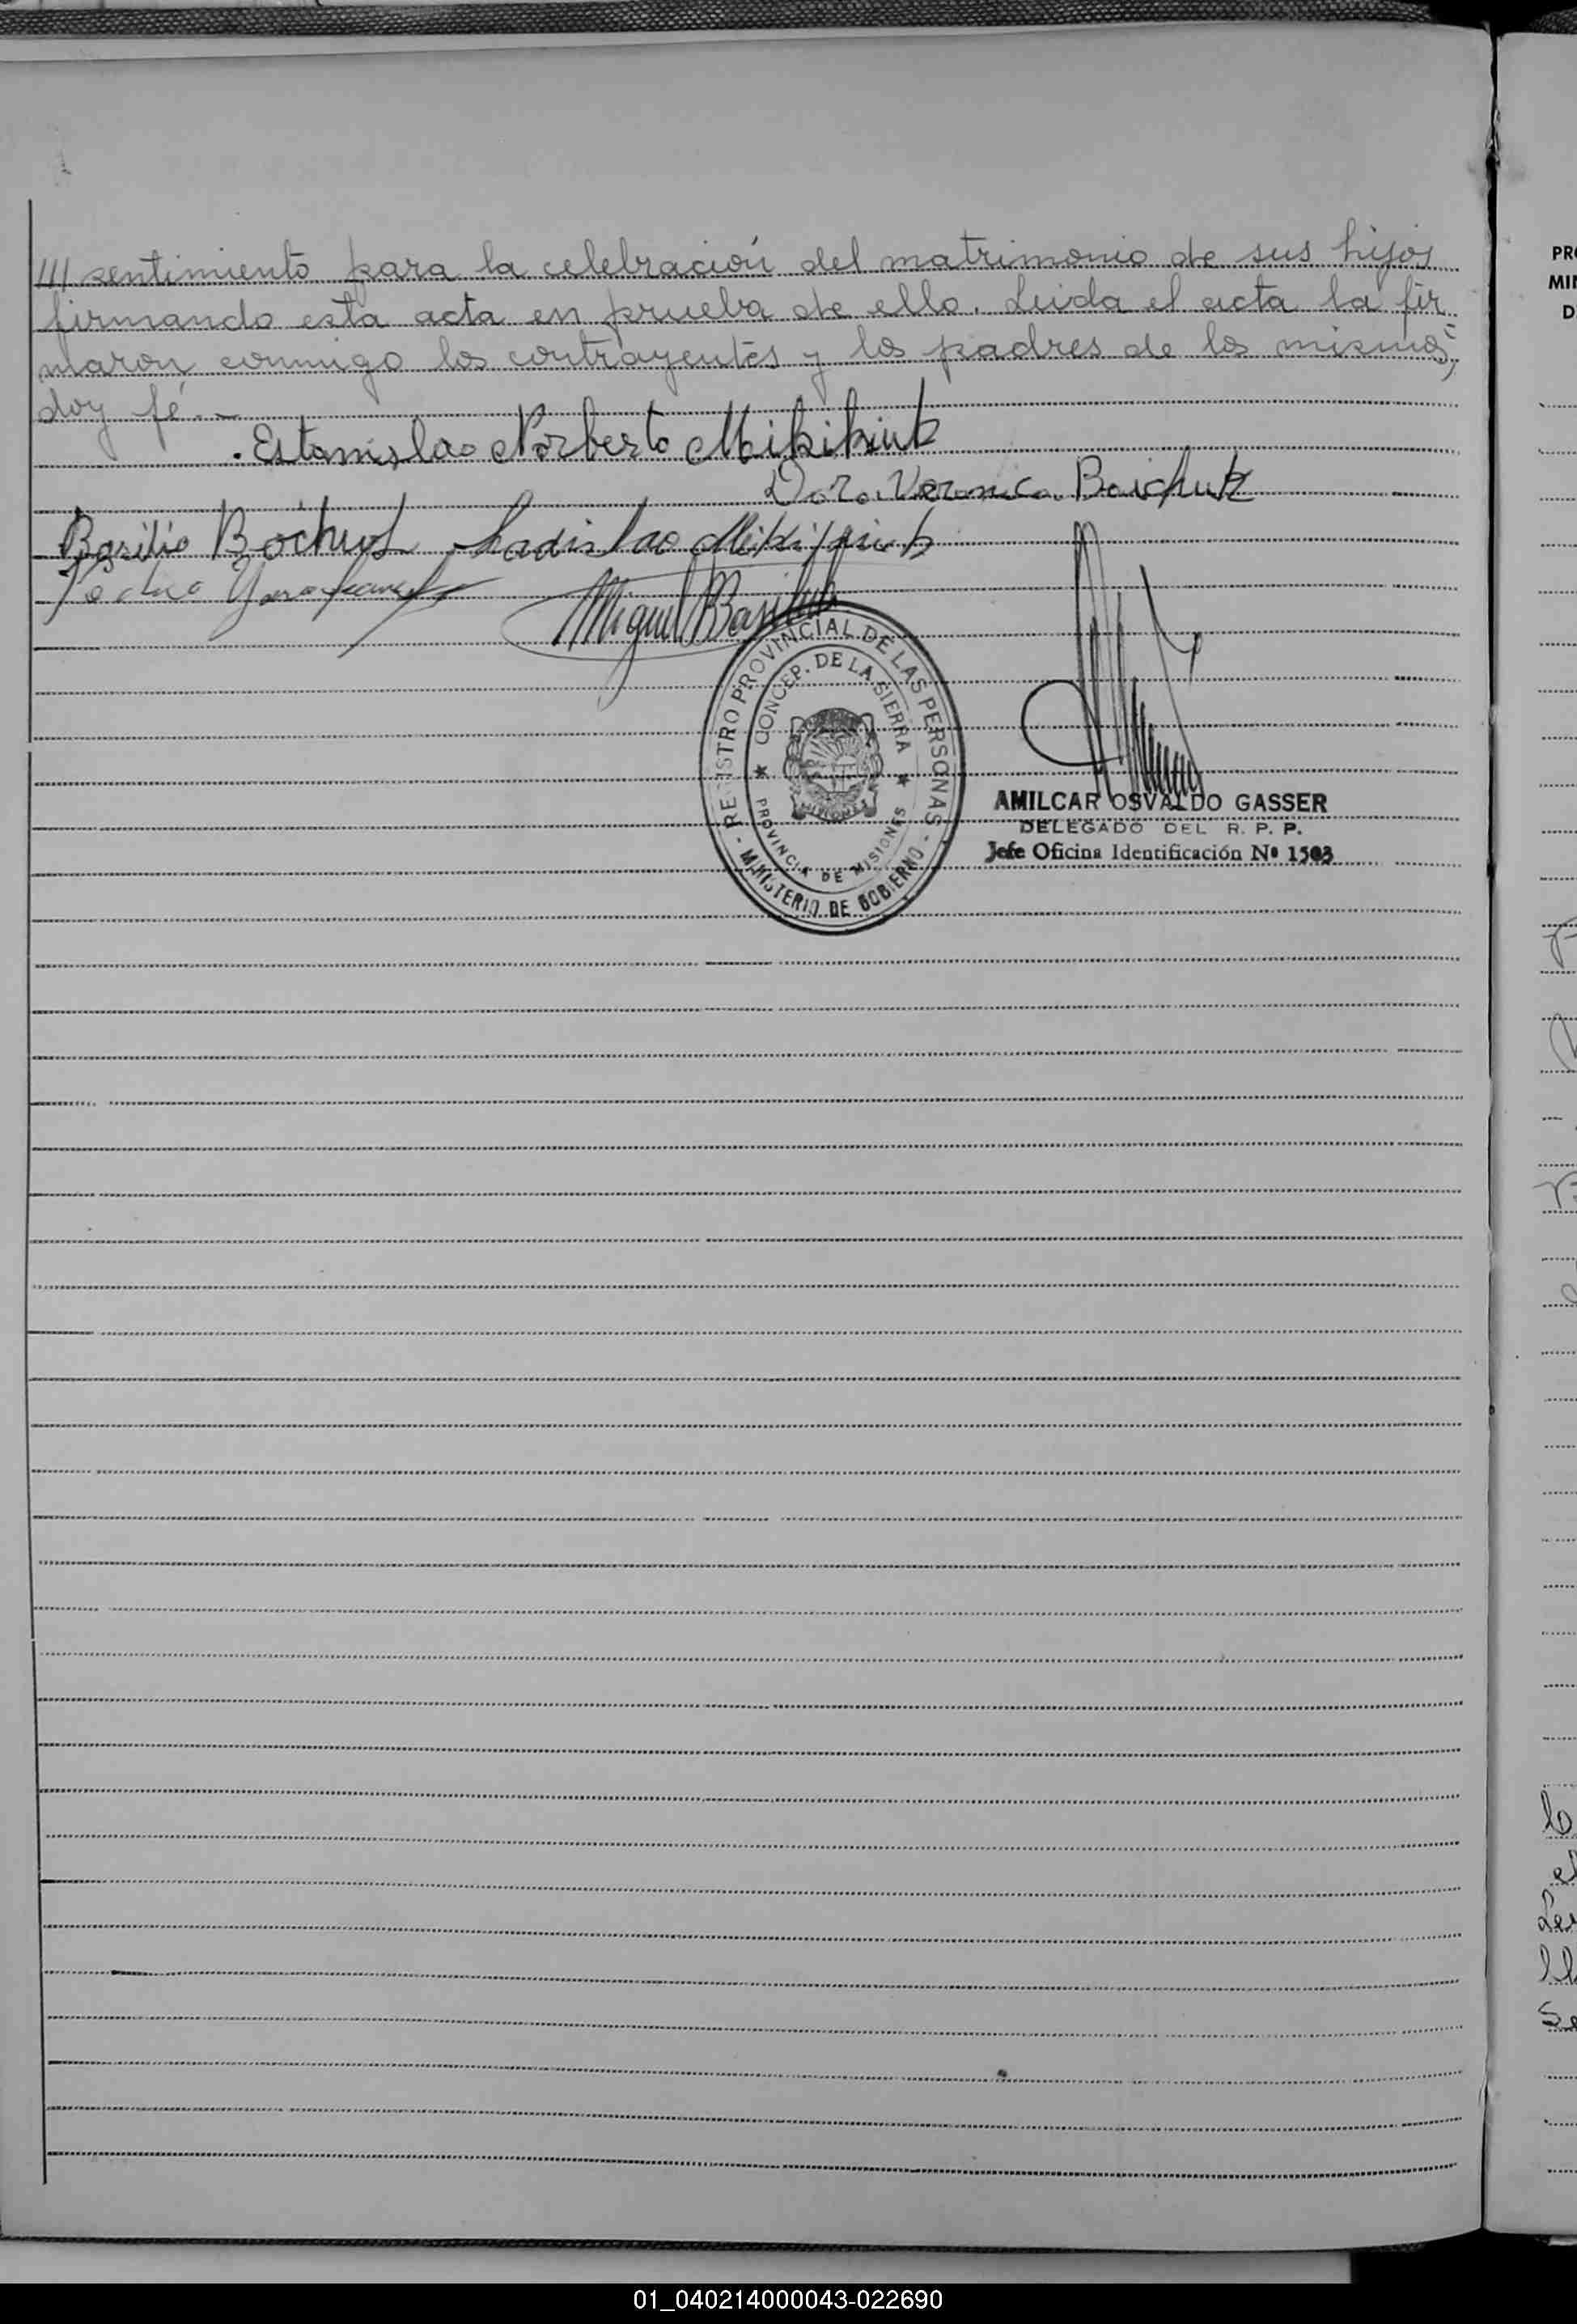 /// sentimiento para la celebración del matrimonio de sus hijos
firmando esta acta en prueba de ello. Leida el acta la fir
maron conmigo los contrayentes y los padres de los mismos,
doy fé.-
Estanislao Norberto Mikikiuk
Dora Veronica Baichuk
Basilio Bochuk Ladislao Mikikiuk
Pedro
Miguel
REGISTRO PROVINCIAL DE LAS PERSONAS
- MINISTERIO DE GOBIERNO -
★ CONCEP. DE LA SIERRA ★
PROVINCIA DE MISIONES
MISIONES
AMILCAR OSVALDO GASSER
DELEGADO DEL R. P. P.
Jefe Oficina Identificación Nº 1503
PR
MI
D
lo
el
Le
ll
Se
01_040214000043-022690